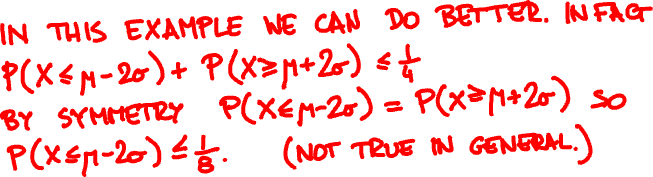 IN THIS EXAMPLE WE CAN DO BETTER. IN FACT
P(X≤μ-2σ)+ P(X≥μ+2σ) ≤ 1/4
BY SYMMETRY P(X≤μ-2σ) = P(X≥μ+2σ) SO
P(X≤μ-2σ) ≤ 1/8. (NOT TRUE IN GENERAL.)